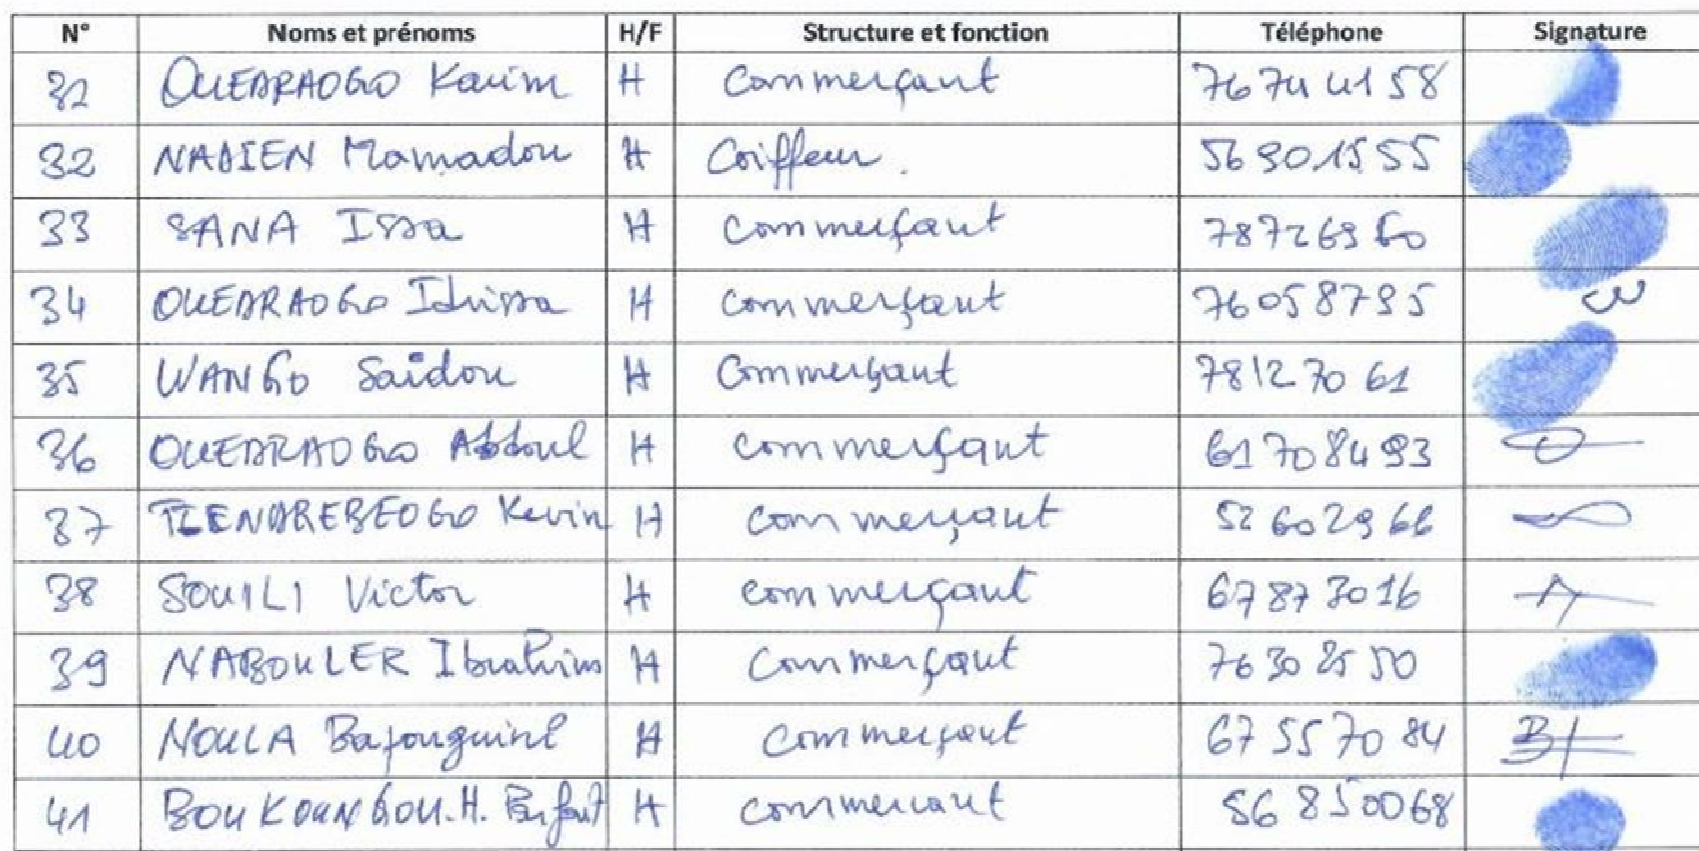 N° Noms et prénoms H/F Structure et fonction Téléphone Signature
31 OUEDRAOGO Karim H Commerçant 76 74 41 58
32 NABIEN Mamadou H Coiffeur. 56 90 15 55
33 SANA Issa H Commerçant 78 72 69 60
34 OUEDRAOGO Idrissa H Commerçant 76 05 87 95
35 WANGO Saïdou H Commerçant 78 12 70 61
36 OUEDRAOGO Abdoul H Commerçant 61 70 84 93
37 TIENDREBEOGO Kevin H Commerçant 52 60 29 66
38 SOUILI Victor H Commerçant 67 87 30 16
39 NABOULER Ibrahim H Commerçant 76 30 25 50
40 NOULA H Commerçant 67 55 70 84
41 BOUKOUNGOU.H. H Commercant 56 85 00 68